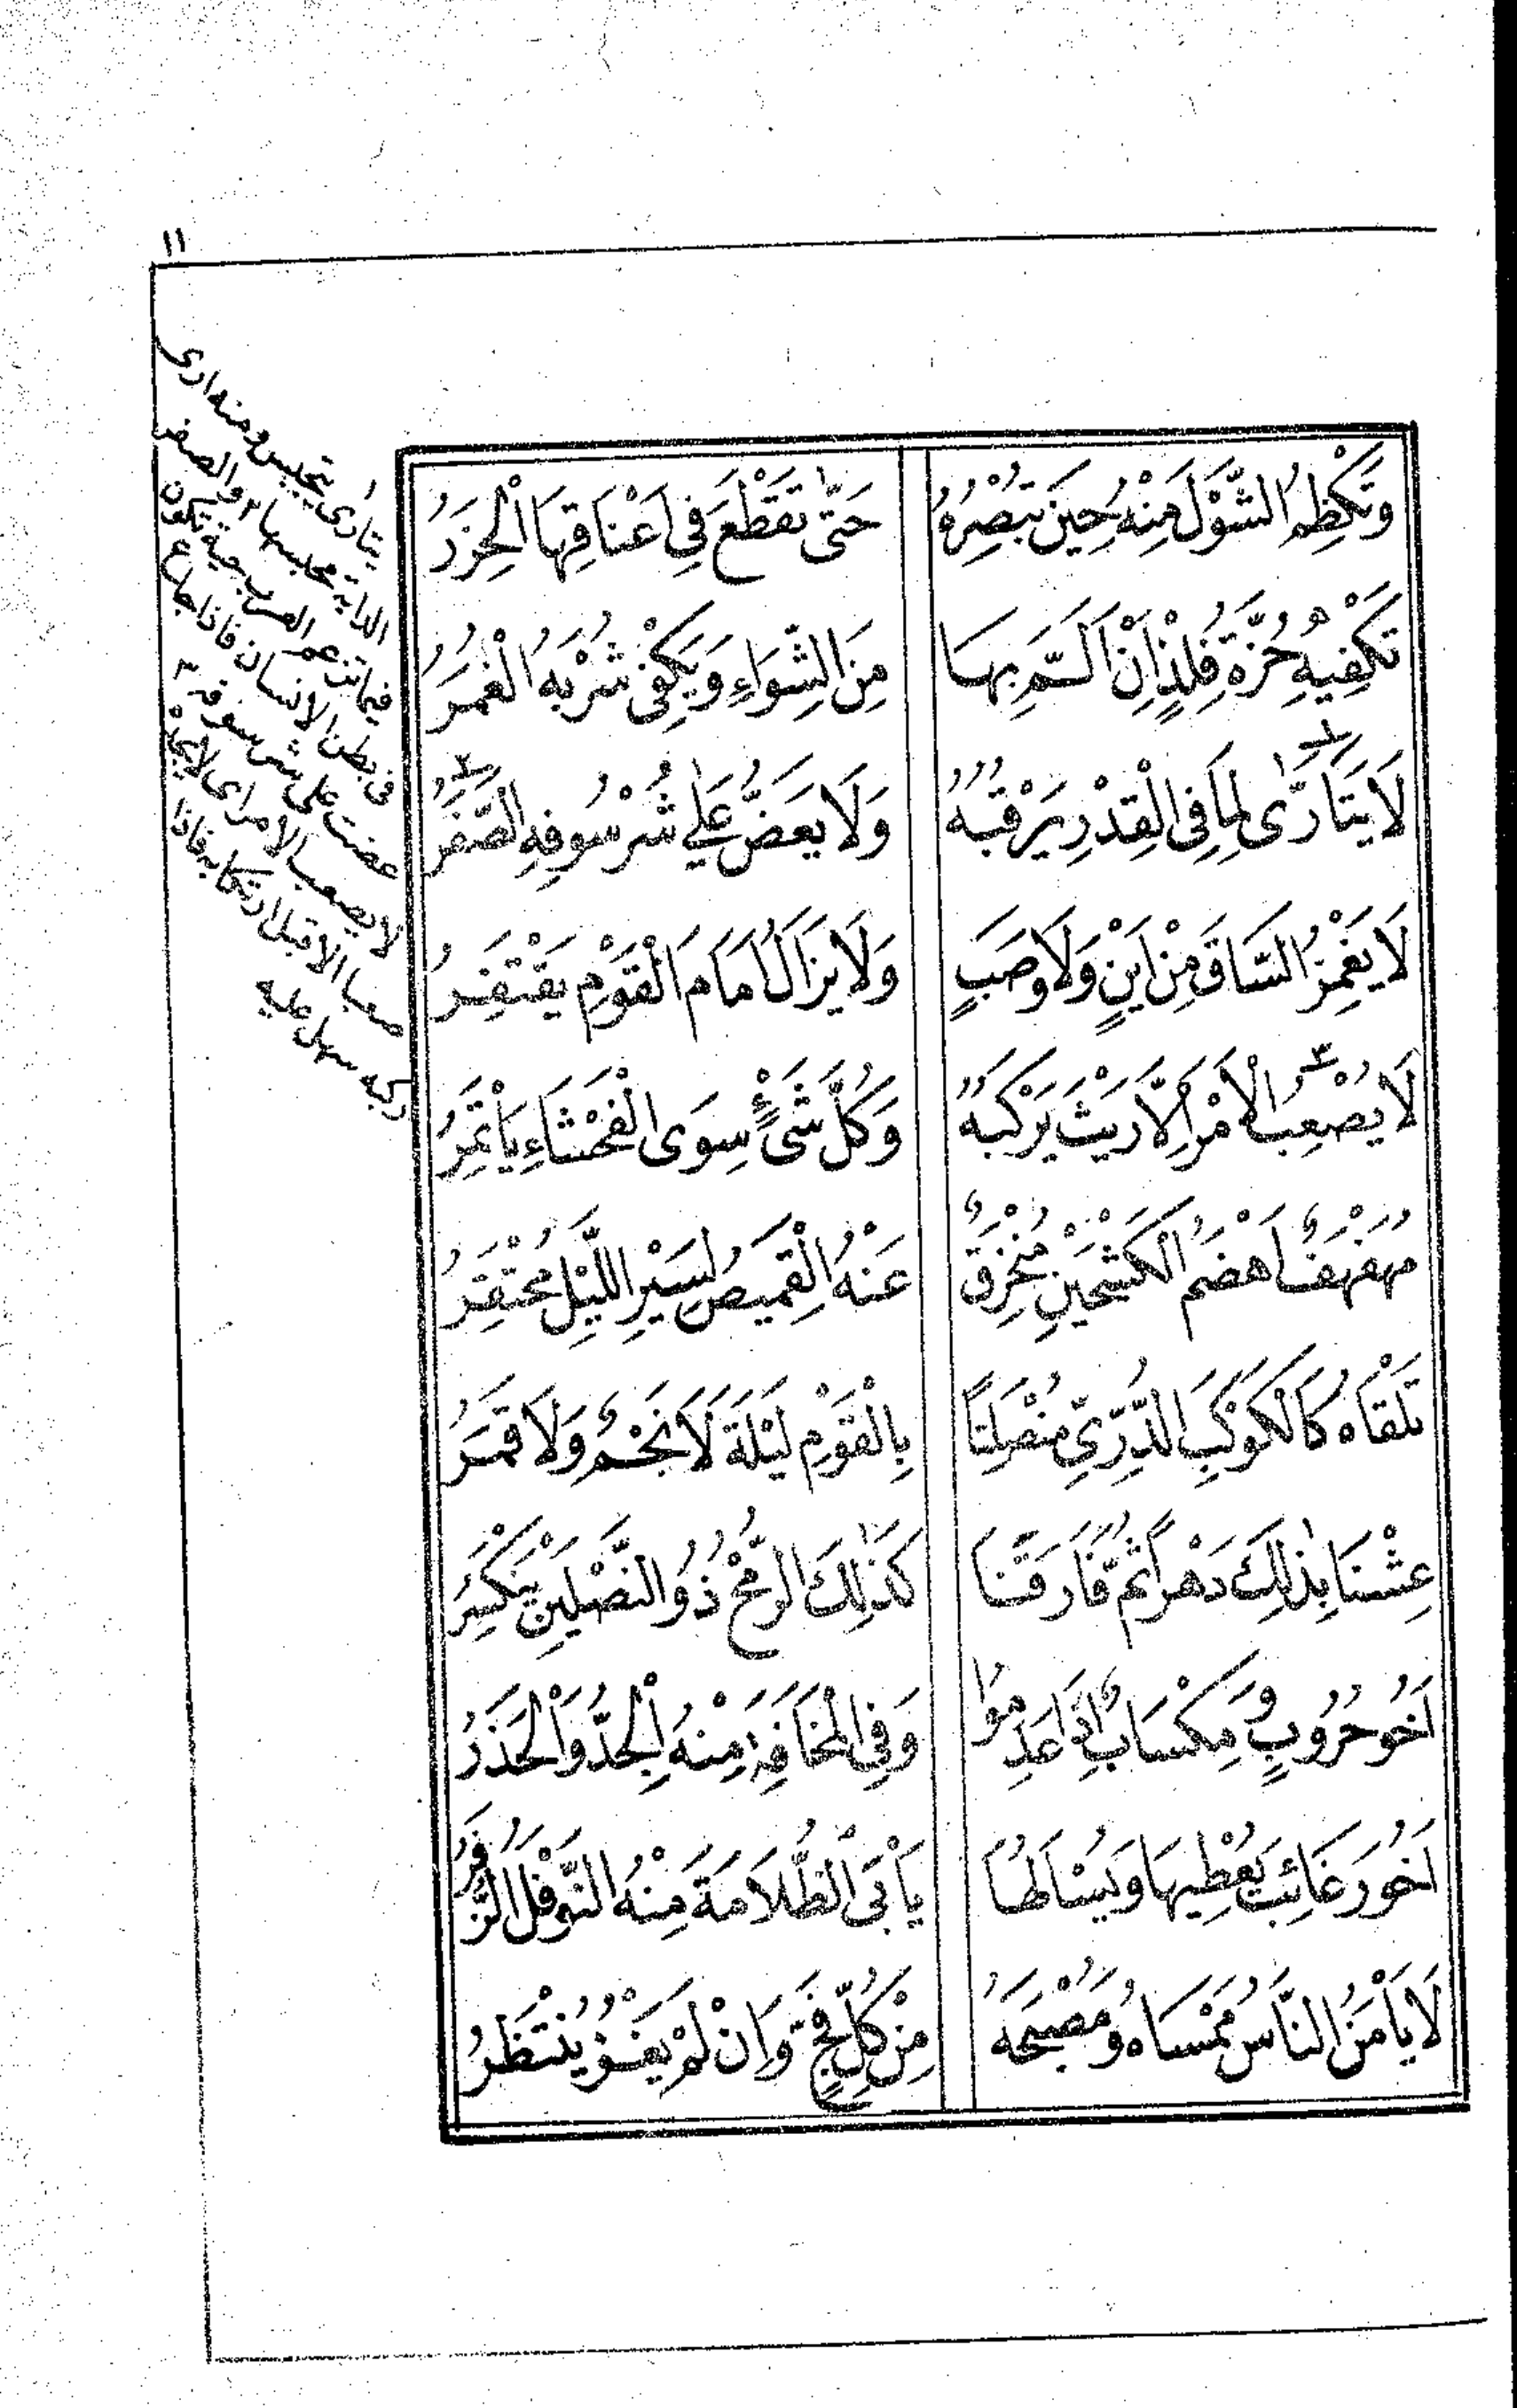 ١١
وَتَكْظِمُ الشَّوْلَ مِنْهُ حِينَ تَبْصِرُهُ حَتّٰى تَقَطَّعَ فِى اَعْنَاقِهَا الْجِزَرُ
تَكْفِيْهِ حُزَّةُ فِلْذٍ اِنْ اَلَمَّ بِهَا مِنَ الشِّوَاءِ وَيَكْفِى شُرْبَهُ الْغُمَرُ
لَا يَتَاَرّٰى لِمَا فِى الْقِدْرِ يَرْقُبُهُ وَلَا يَعَضُّ عَلٰى شُرْسُوفِهِ الصَّفَرُ
لَا يَغْمِزُ السَّاقَ مِنْ اَيْنٍ وَلَا وَصَبٍ وَلَا يَزَالُ اَمَامَ الْقَوْمِ يَقْتَفِرُ
لَا يُصْعِبُ الْاَمْرَ اِلَّا رَيْثَ يَرْكَبُهُ وَكُلَّ شَىْءٍ سِوَى الْفَحْشَاءِ يَأْتَمِرُ
مُهَفْهَفٌ اَهْضَمُ الْكَشْحَيْنِ مُنْخَرِقٌ عَنْهُ الْقَمِيصُ لِسَيْرِ اللَّيْلِ مُحْتَقِرُ
تَلْقَاهُ كَالْكَوْكَبِ الدُّرِّىِّ مُنْصَلِتًا بِالْقَوْمِ لَيْلَةَ لَا نَجْمٌ وَلَا قَمَرُ
عِشْنَا بِذٰلِكَ دَهْرًا ثُمَّ فَارَقَنَا كَذٰلِكَ الرُّمْحُ ذُو النَّصْلَيْنِ يَنْكَسِرُ
اَخُو حُرُوبٍ وَمِكْسَابٌ اِذَا عَدِمُوا وَفِى الْمَخَافَةِ مِنْهُ الْجِدُّ وَالْحَذَرُ
اَخُو رَغَائِبَ يُعْطِيهَا وَيُسْاَلُهَا يَأْبَى الظُّلَامَةَ مِنْهُ النَّوْفَلُ الزُّفَرُ
لَا يَأْمَنُ النَّاسُ مُمْسَاهُ وَمُصْبَحَهُ مِنْ كُلِّ فَجٍّ وَاِنْ لَمْ يَغْزُ يُنْتَظَرُ
١ يتارى يتحبس ومنه ارى
الدابة محبسها ٢ والصفر
فيما تزعم العرب حية تكون
فى بطن الانسان فاذا جاع
عضت على شرسوفه ٣
لا يصعب الامر اى لا يجد
صعبا الا قبل ارتكابه فاذا
ركبه سهل عليه